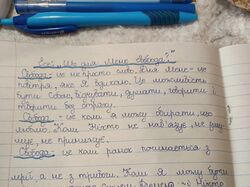 Есе „Що для мене свобода?"
Свобода - це не просто слово. Для мене - це
повітря, яке я вдихаю. Це можливість
бути собою, відчувати, думати, говорити і
творити без страху.
Свобода - це коли я можу обирати, що
люблю. Коли ніхто не нав'язує, не
мує, не принижує.
Свобода - це коли ранок починається з
мрії, а не з тривоги. Коли я можу бути